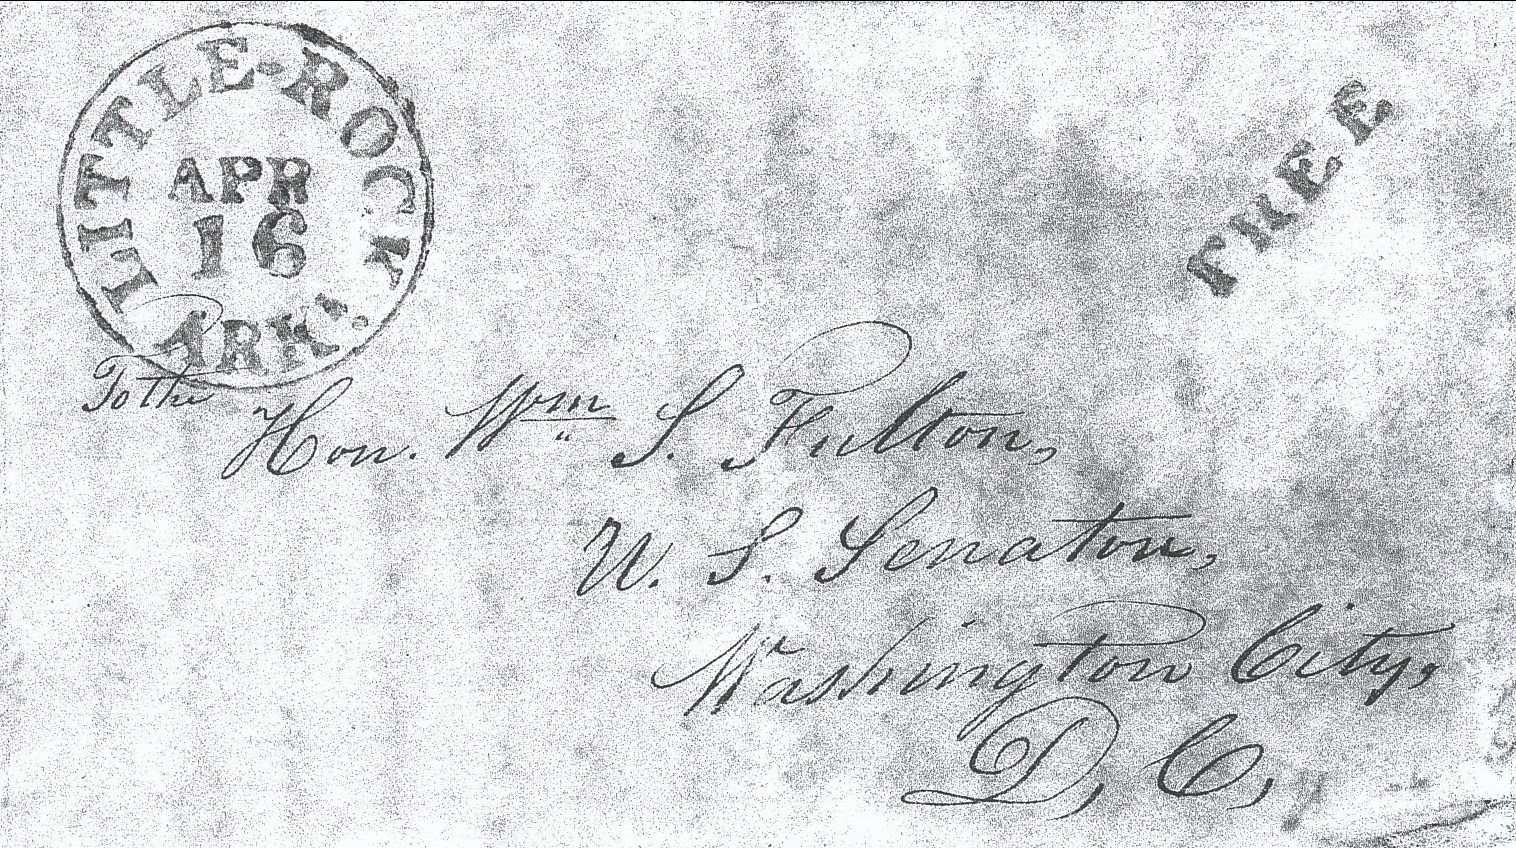 LITTLE-ROCK
APR
16
ARK'.
FREE
To the
Hon. Wm S. Fulton,
U. S. Senator,
Washington City,
D, C,